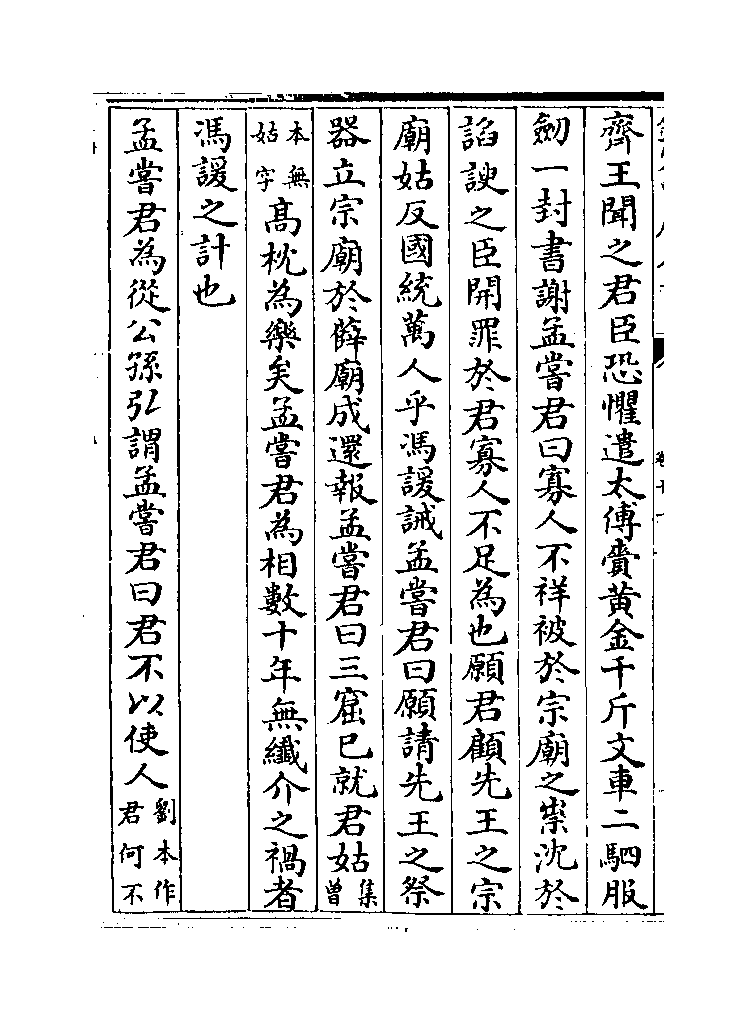 齊王聞之君臣恐懼遣太傅賫黃金千斤文車二駟服
劒一封書謝孟嘗君曰寡人不祥被於宗廟之祟沈於
諂諛之臣開罪於君寡人不足為也願君顧先王之宗
廟姑反國統萬人乎馮諼誡孟嘗君曰願請先王之祭
器立宗廟於薛廟成還報孟嘗君曰三窟已就君姑集曾
本無姑字髙枕為樂矣孟嘗君為相數十年無纎介之禍者
馮諼之計也
孟嘗君為從公孫弘謂孟嘗君曰君不以使人劉本作君何不